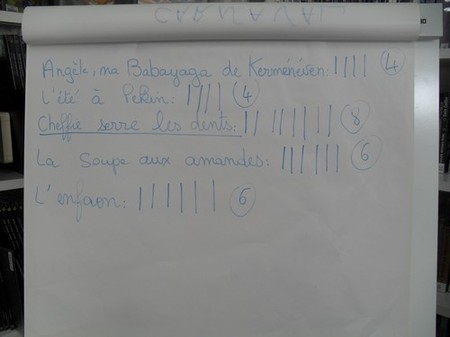 Angèle, ma Babayaga de Kerménéven: |||| 4
L'été à Pékin: |||| 4
Cheffie serre les dents: |||||||| 8
La Soupe aux amandes: |||||| 6
L'enfaon: |||||| 6